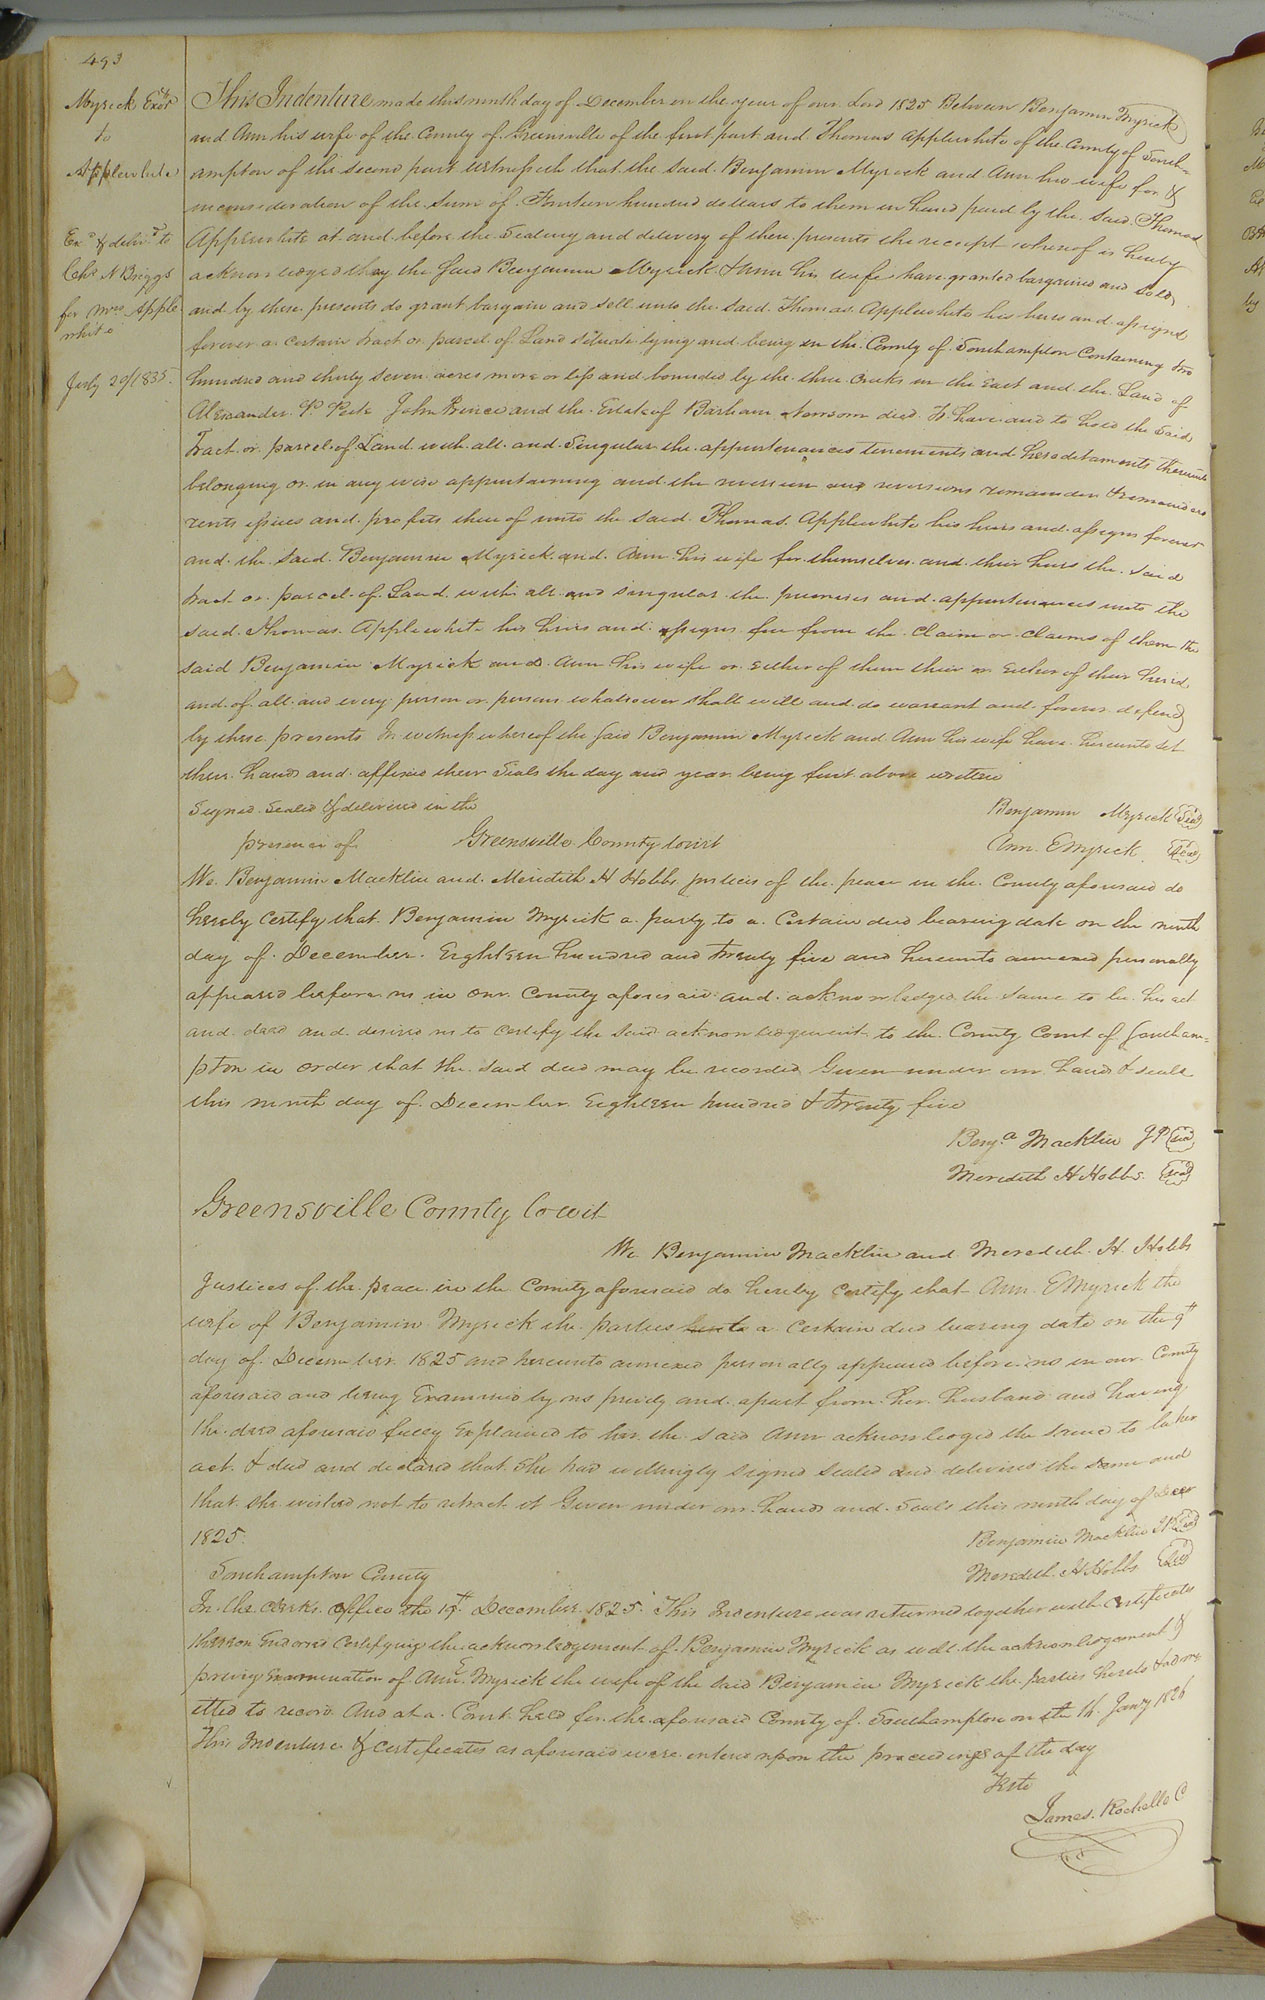 493
Myrick & Ux
to
Applewhite
Ex.d & deliv.d to
Chs. N Briggs
for Mrs Apple
white
July 29/1835.
This Indenture made this ninth day of December in the year of our Lord 1825 Between Benjamin Myrick
and Ann his wife of the County of Greensville of the first part and Thomas Applewhite of the County of South-
ampton of the second part witnesseth that the said Benjamin Myrick and Ann his wife for &
in consideration of the sum of Fourteen hundred dollars to them in hand paid by the said Thomas
Applewhite at and before the Sealing and delivery of these presents the receipt whereof is hereby
acknowledged they the said Benjamin Myrick & Ann his wife have granted bargained and sold
and by these presents do grant bargain and sell unto the said Thomas Applewhite his heirs and assigns
forever a certain tract or parcel of Land situate lying and being in the County of Southampton Containing two
hundred and thirty seven acres more or less and bounded by the three Creeks on the East and the Land of
Alexander P Peete John Prince and the Estate of Barham Newsom decd. To have and to hold the said
Tract or parcel of Land with all and Singular the appurtenances tenements and hereditaments thereunto
belonging or in any wise appertaining and the reversion and reversions remainder & remainders
rents issues and profits thereof unto the said Thomas Applewhite his heirs and assigns forever
and the said Benjamin Myrick and Ann his wife for themselves and their heirs the said
tract or parcel of Land with all and singular the premises and appurtenances unto the
said Thomas Applewhite his heirs and assigns free from the claim or claims of them the
said Benjamin Myrick and Ann his wife or either of them their or either of their heirs
and of all and every person or persons whatsoever shall will and do warrant and forever defend
by these presents In witness whereof the said Benjamin Myrick and Ann his wife have hereunto set
their hands and affixed their Seals the day and year being first above written
Signed Sealed & delivered in the Benjamin Myrick Seal
presence of Greensville County towit Ann. E Myrick Seal
We Benjamin Macklin and Meridith H Hobbs justices of the peace in the County aforesaid do
hereby certify that Benjamin Myrick a party to a Certain deed bearing date on the ninth
day of December Eighteen hundred and twenty five and hereunto annexed personally
appeared before us in our County aforesaid and acknowledged the same to be his act
and deed and desired us to certify the said acknowledgement to the County Court of Southam=
pton in order that the said deed may be recorded Given under our hands & seals
this ninth day of December Eighteen hundred & twenty five
Benj.a Macklin JP Seal
Meredith H Hobbs Seal
Greensville County towit
We Benjamin Macklin and Meredith H Hobbs
Justices of the peace in the County aforesaid do hereby certify that Ann E Myrick the
wife of Benjamin Myrick the parties a certain deed bearing date on the 9th
day of December 1825 and hereunto annexed personally appeared before us in our County
aforesaid and being Examined by us privily and apart from her husband and having
the deed aforesaid fully Explained to her the said Ann acknowledged the same to be her
act & deed and declared that she had willingly signed sealed and delivered the same and
that she wished not to retract it Given under our hands and Seals this ninth day of Decr
1825. Benjamin Macklin JP Seal
Southampton County Meredith H Hobbs Seal
In the clerks office the 19th December 1825. This Indenture was returned together with certificates
thereon Endorsed certifying the acknowledgement of Benjamin Myrick as well the acknowledgement &
privy Examination of Ann E Myrick the wife of the said Benjamin Myrick the parties hereto & adm-
itted to record And at a Court held for the aforesaid County of Southampton on the 16 Jany 1826
This Indenture & certificates as aforesaid were entered upon the proceedings of the day
Teste
James. Rochelle C